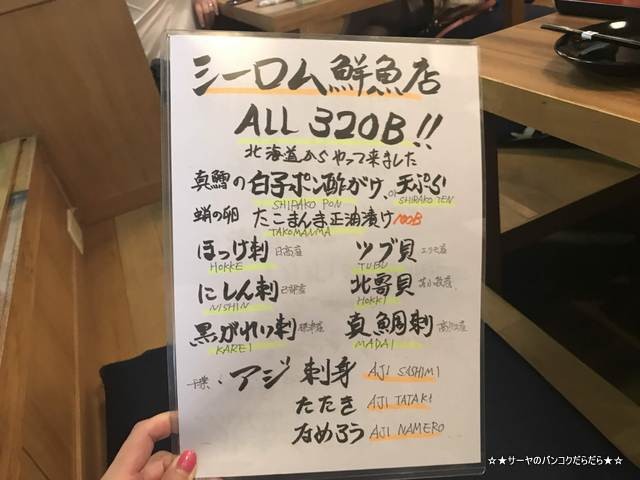 シーロム鮮魚店
ALL 320B!!
北海道からやって来ました
真鱈の白子ポン酢がけ、or天ぷら
SHIRAKO PON SHIRAKO TEN
蛸の卵 たこまんま正油漬け 100B
TAKOMANMA
ほっけ刺 日高産 ツブ貝 エリモ産
HOKKE TUBU
にしん刺 北寄貝 苫小牧産
NISHIN HOKKI
黒がれい刺 真鯛刺
KAREI MADAI
千葉、アジ刺身 AJI SASHIMI
たたき AJI TATAKI
なめろう AJI NAMERO
☆★サーヤのバンコクだらだら★☆